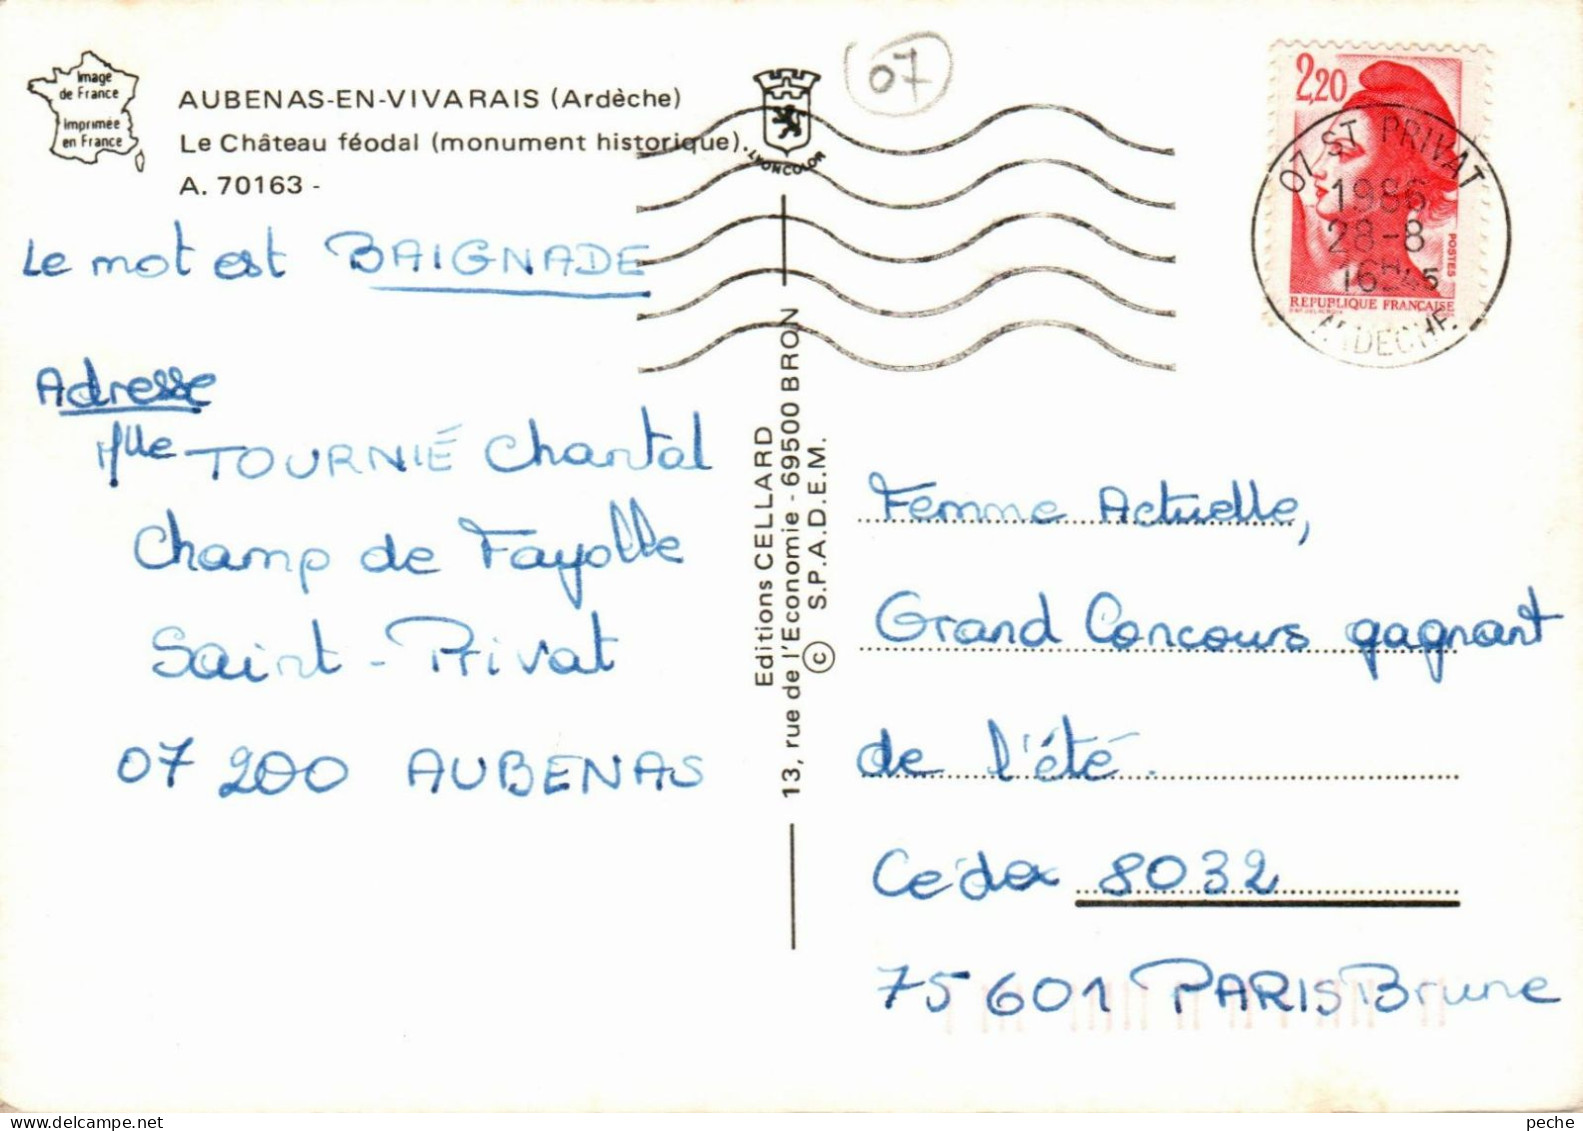 Image
de France
Imprimée
en France
AUBENAS-EN-VIVARAIS (Ardèche)
Le Château féodal (monument historique).
A. 70163 -
LYONCOLOR
07
2,20
POSTES
REPUBLIQUE FRANÇAISE
07 ST PRIVAT
1986
28-8
16H45
ARDECHE
Le mot est BAIGNADE
Adresse
Mlle TOURNIÉ Chantal
Champ de Fayolle
Saint-Privat
07 200 AUBENAS
Editions CELLARD
13, rue de l'Economie - 69500 BRON
© S.P.A.D.E.M.
Femme Actuelle,
Grand Concours gagnant
de l'été.
Cédex 8032
75601 PARIS Brune
peche